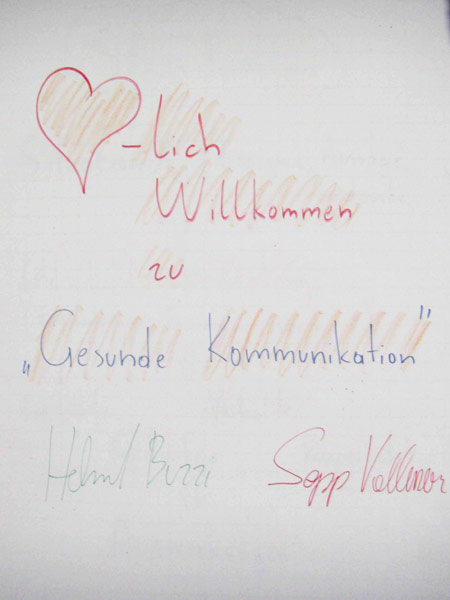 -lich
Willkommen
zu
„Gesunde Kommunikation"
Helmut Buzzi Sepp